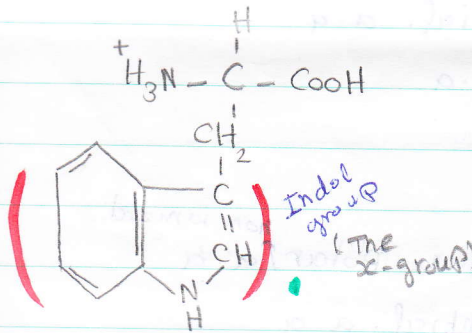 H
+
H3N - C - COOH
CH2
C
CH
N
H
Indol
group
(The
x-group)